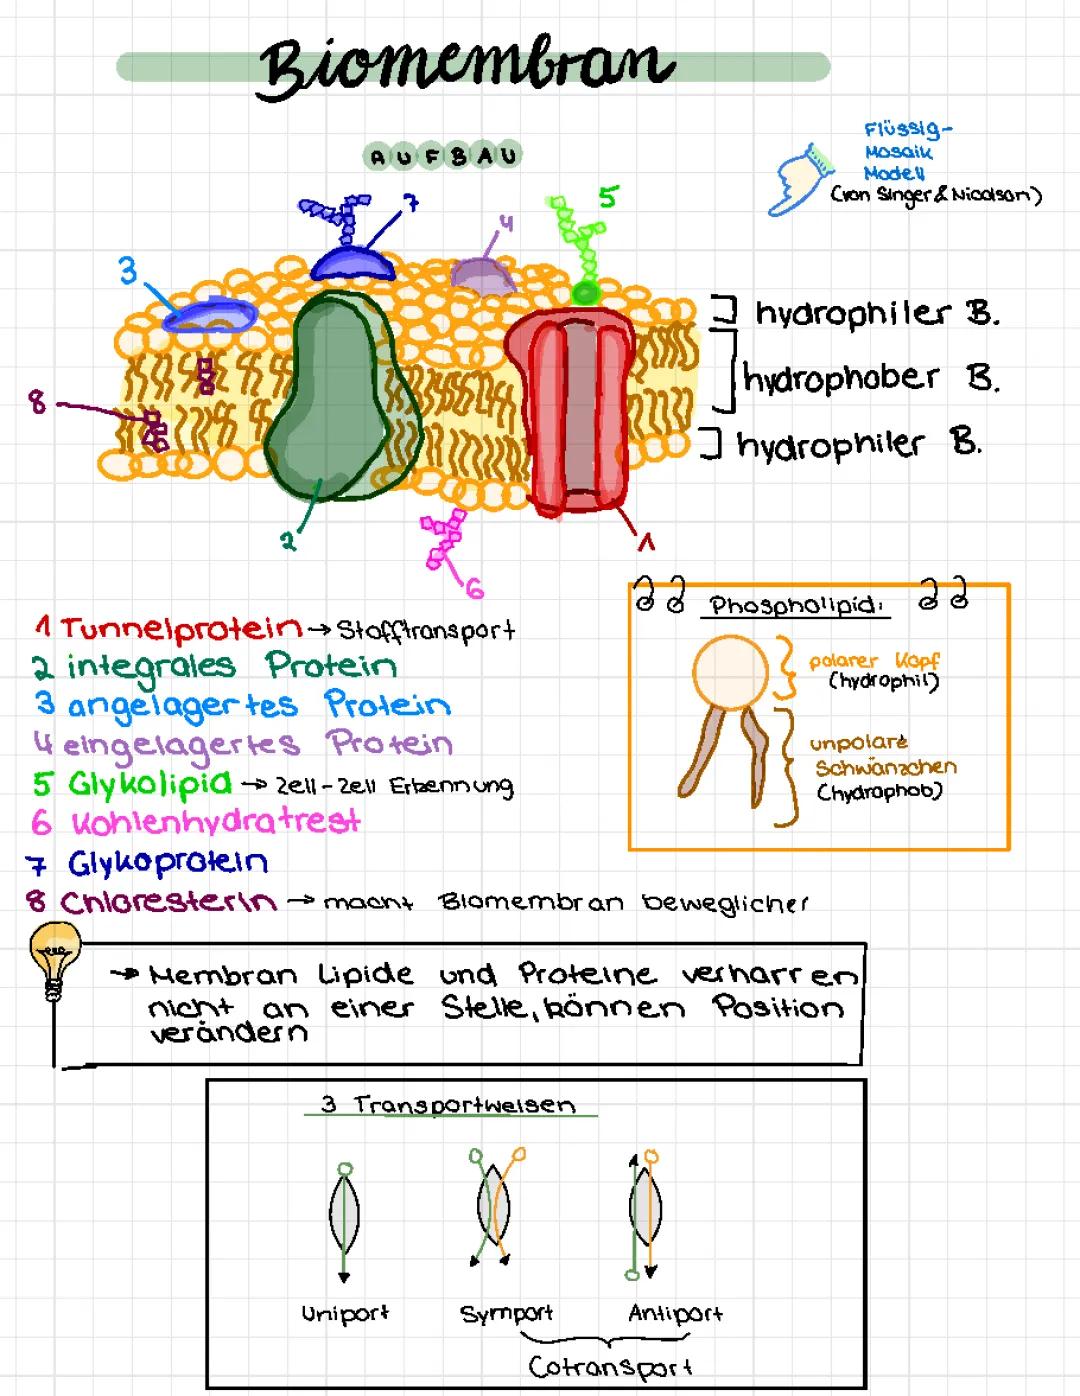 Biomembran
AUFBAU
Flüssig-
Mosaik
Modell
(von Singer & Nicolson)
7
5
4
3
8
2
6
1
] hydrophiler B.
hydrophober B.
] hydrophiler B.
1 Tunnelprotein → Stofftransport
2 integrales Protein
3 angelagertes Protein
4 eingelagertes Protein
5 Glykolipid → Zell-Zell Erkennung
6 Kohlenhydratrest
7 Glykoprotein
8 Chloresterin → macht Biomembran beweglicher
Phospholipid:
polarer Kopf
(hydrophil)
unpolare
Schwänzchen
(hydrophob)
→ Membran Lipide und Proteine verharren
nicht an einer Stelle, können Position
verändern
3 Transportweisen
Uniport Symport Antiport
Cotransport